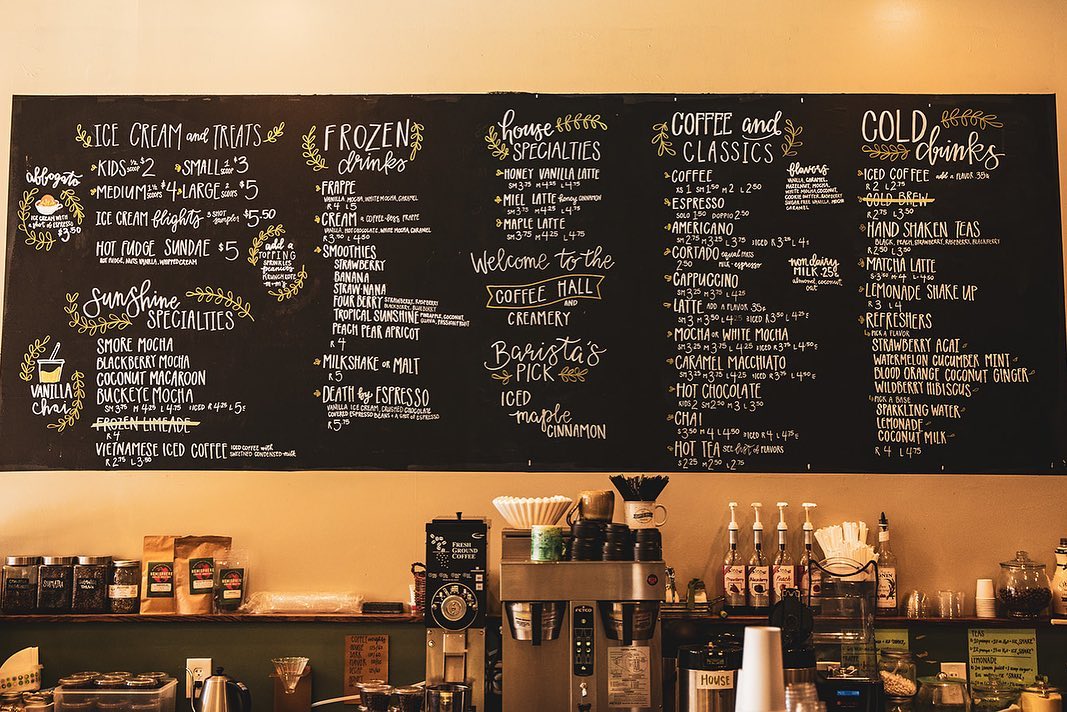 ICE CREAM and TREATS
KIDS 1/2 scoop $2 SMALL 1 scoop $3
MEDIUM 1 1/2 scoops $4 LARGE 2 scoops $5
ICE CREAM flights 3 SHOT sampler $5.50
HOT FUDGE SUNDAE $5
HOT FUDGE, NUTS, VANILLA, WHIPPED CREAM
affogato
ICE CREAM with
a pour of ESPRESSO
$3.50
add a
TOPPING
SPRINKLES
PEANUTS
M+M'S
Sunshine
SPECIALTIES
VANILLA
chai
SMORE MOCHA
BLACKBERRY MOCHA
COCONUT MACAROON
BUCKEYE MOCHA
SM 3.75 M 4.25 L 4.75 ICED R 4.25 L 5
FROZEN LIMEADE
R 4
VIETNAMESE ICED COFFEE ICED COFFEE with SWEETENED CONDENSED milk
R 2.75 L 3.50
FROZEN
drinks
FRAPPE
VANILLA, MOCHA, WHITE MOCHA, CARAMEL
R 4 L 5
CREAM a COFFEE-less FRAPPE
VANILLA, HOT CHOCOLATE, WHITE MOCHA, CARAMEL
R 3.50 L 4.50
SMOOTHIES
STRAWBERRY
BANANA
STRAW-NANA
FOUR BERRY STRAWBERRY, RASPBERRY BLACKBERRY, BLUEBERRY
TROPICAL SUNSHINE PINEAPPLE, COCONUT, GUAVA, PASSIONFRUIT
PEACH PEAR APRICOT
R 4
MILKSHAKE or MALT
R 5
DEATH by ESPRESSO
VANILLA ICE CREAM, CRUSHED CHOCOLATE
COVERED ESPRESSO BEANS + a SHOT of ESPRESSO
R 5.75
house
SPECIALTIES
HONEY VANILLA LATTE
SM 3.75 M 4.25 L 4.75
MIEL LATTE honey CINNAMON
SM 3.75 M 4.25 L 4.75
MAPLE LATTE
SM 3.75 M 4.25 L 4.75
Welcome to the
COFFEE HALL
AND
CREAMERY
BARISTA'S
PICK
ICED
maple
CINNAMON
COFFEE and
CLASSICS
COFFEE
XS 1 SM 1.50 M 2 L 2.50
ESPRESSO
SOLO 1.50 DOPPIO 2.50
AMERICANO
SM 2.25 M 2.75 L 3.75 ICED R 3.25 L 4
CORTADO equal parts
2.50 milk + espresso
CAPPUCCINO
SM 3.25 M 3.75 L 4.25
LATTE ADD a FLAVOR 35¢
SM 3 M 3.50 L 4.25 ICED R 3.50 L 4.25
MOCHA or WHITE MOCHA
SM 3.25 M 3.75 L 4.25 ICED R 3.75 L 4.50
CARAMEL MACCHIATO
SM 3.25 M 3.75 L 4.25 ICED R 3.75 L 4.50
HOT CHOCOLATE
KIDS 2 SM 2.50 M 3 L 3.50
CHAI
S 3.50 M 4 L 4.50 ICED R 4 L 4.75
HOT TEA SEE list of FLAVORS
S 2.25 M 2.50 L 2.75
flavors
VANILLA, CARAMEL,
HAZELNUT, MOCHA,
WHITE MOCHA, COCONUT,
COOKIE BUTTER, RASPBERRY
SUGAR FREE VANILLA, MOCHA
CARAMEL
non dairy
MILK 25¢
almond, coconut,
oat
COLD
drinks
ICED COFFEE add a FLAVOR 35¢
R 2 L 2.75
COLD BREW
R 2.75 L 3.50
HAND SHAKEN TEAS
BLACK, PEACH, STRAWBERRY, RASPBERRY, BLACKBERRY
R 2.50 L 3.50
MATCHA LATTE
S 3.50 M 4 L 4.50
LEMONADE SHAKE UP
R 3 L 4
REFRESHERS
PICK A FLAVOR
STRAWBERRY ACAI
WATERMELON CUCUMBER MINT
BLOOD ORANGE COCONUT GINGER
WILDBERRY HIBISCUS
PICK A BASE
SPARKLING WATER
LEMONADE
COCONUT MILK
R 4 L 4.75
FRESH
GROUND
COFFEE
FETCO
HOUSE
SUMATRA
HEMISPHERE
MONIN
COFFEE weights
HOUSE
DARK
FLAVOR
TEAS
LEMONADE